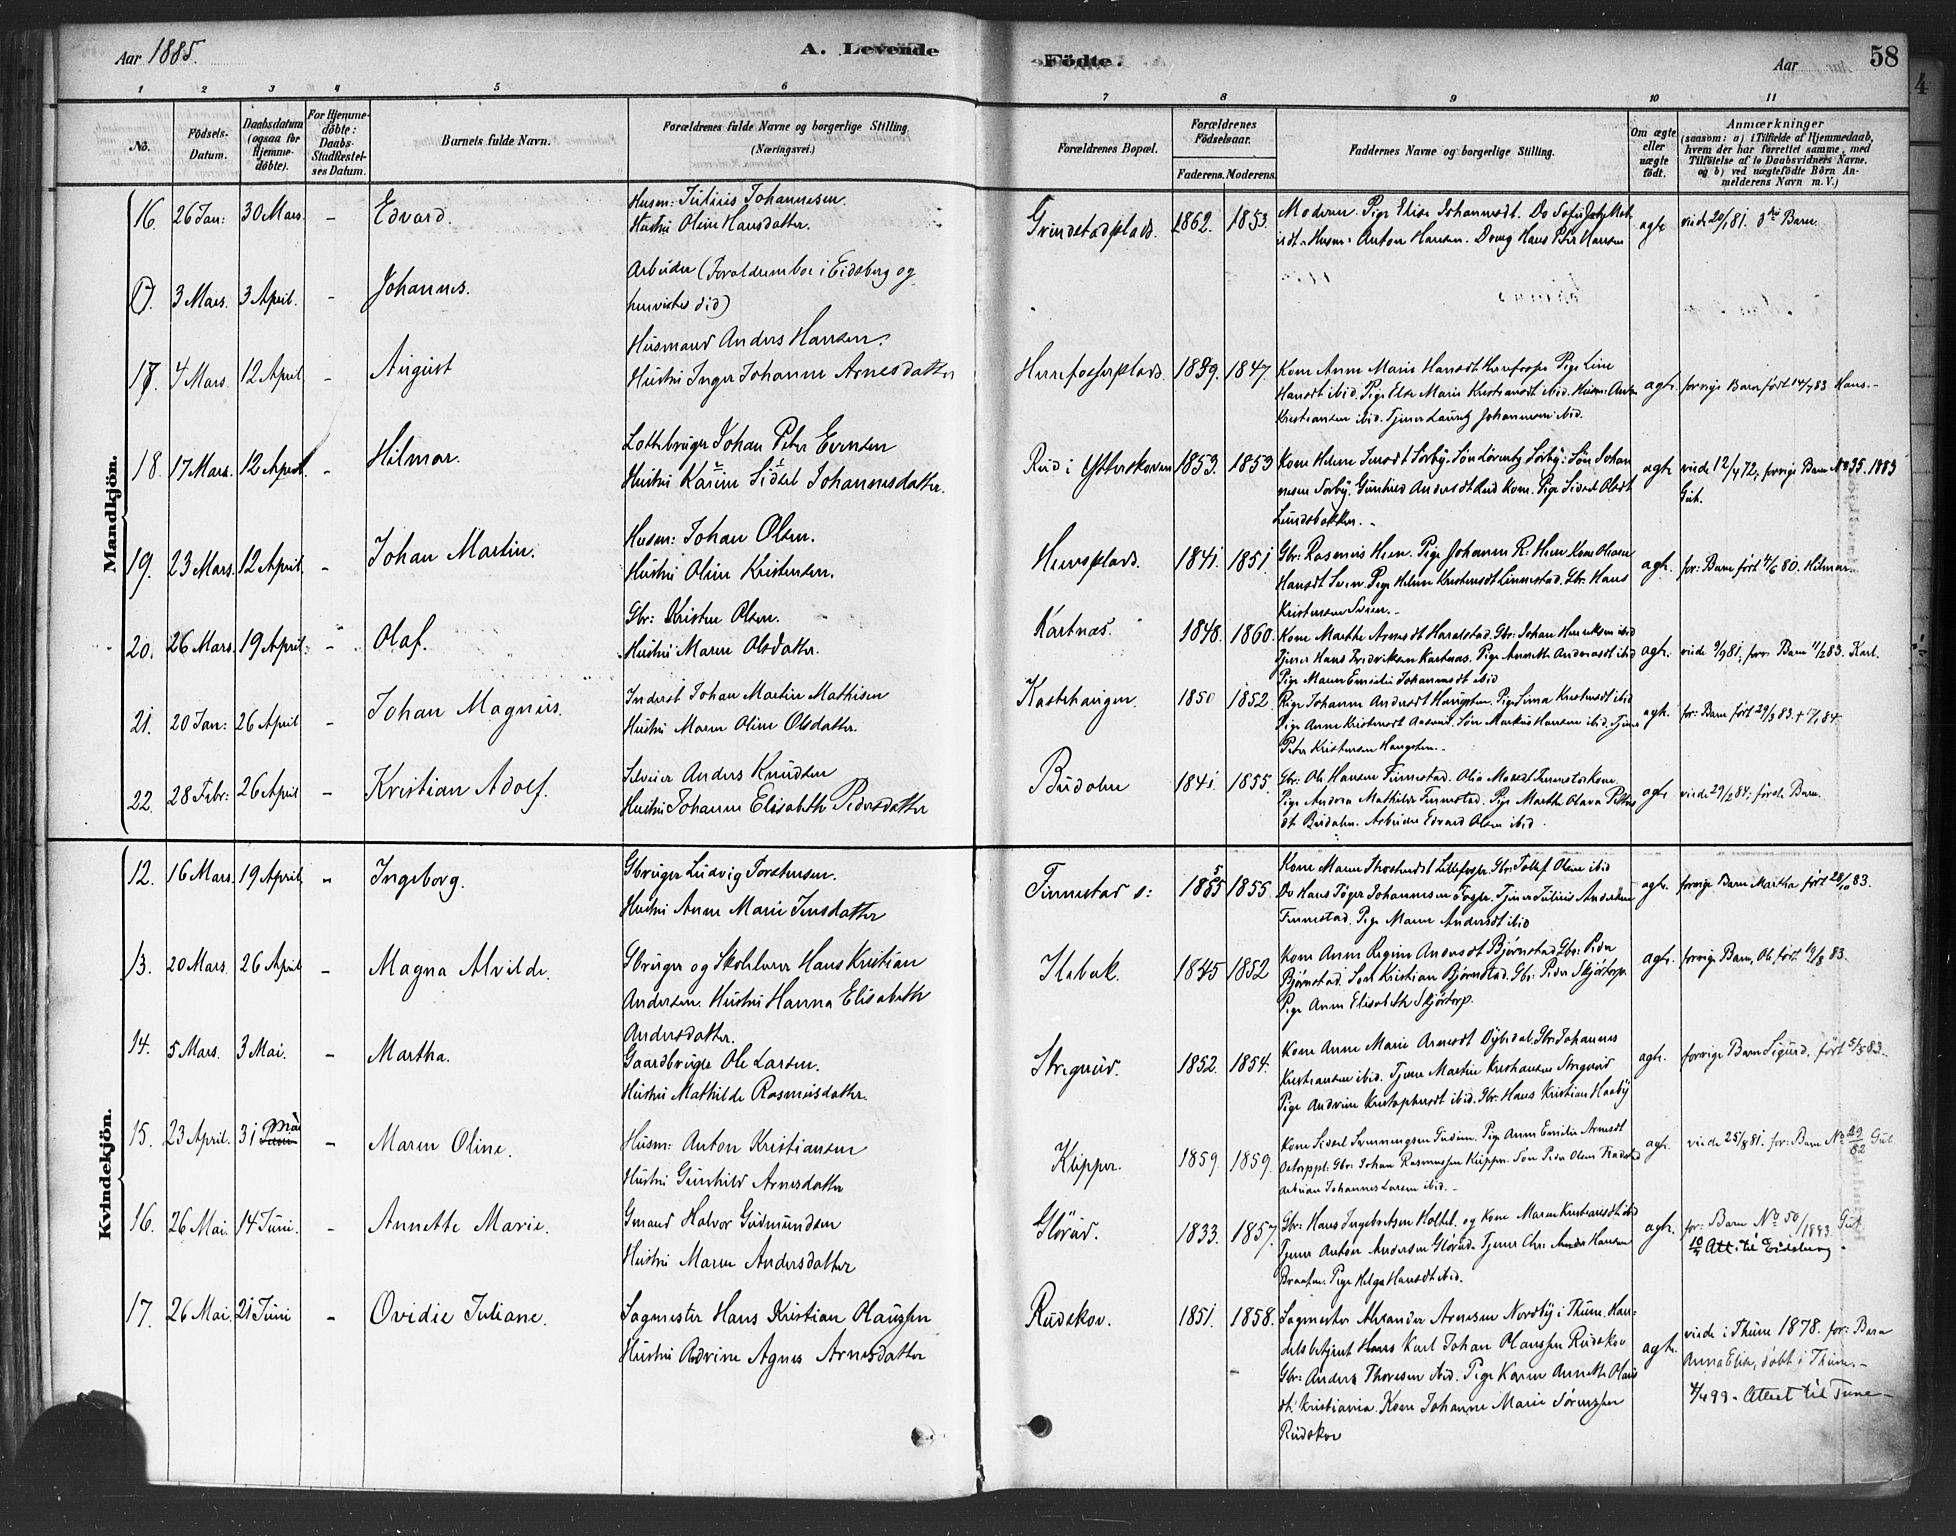 Aar 1885.
A. Levende
Fødte.
Aar
58
1 2 3 4 5 6 7 8 9 10 11
No.
Fødsels-
Datum.
Daabsdatum
(ogsaa for
Hjemme-
døbte).
For Hjemme-
døbte:
Daabs-
Stadfæstel-
ses Datum.
Barnets fulde Navn.
Forældrenes fulde Navne og borgerlige Stilling
(Næringsvei.)
Forældrenes Bopæl.
Forældrenes
Fødselsaar.
Faderens. Moderens.
Faddernes Navne og borgerlige Stilling.
Om ægte
eller
uægte
født.
Anmærkninger
(saasom: a) i Tilfælde af Hjemmedaab,
hvem der har forrettet samme, med
Tilføielse af to Daabsvidners Navne.
og b) ved uægtefødte Børn An-
melderens Navn m. V.)
Mandkjön.
16. 26 Jan: 30 Mars. - Edvard.
Husm: Julius Johannesen.
Hustru Oline Hansdatter.
Grindstadplads. 1862. 1853.
Moderen. Pige Elise Johannsdt.
Husm: Anton Hansen. Dreng Hans Peter Hansen
agte viede 20/1 81. 3die Barn.
17. 3 Mars. 3 April. - Johannes.
Arbeider (Forældrene boe i Eidsberg og
henvistes did)
17. 4 Mars. 12 April - August
Husmand Anders Hansen.
Hustru Inger Johanne Arnesdatter
1839. 1847.
Kone Anne Marie Hansdt Pige Line
Hansdt ibid. Pige Else Marie Kristiansdt ibid. Husm: Anton
Kristiansen ibid. Tjener Lauritz Johannesen ibid.
agte. forrige Barn født 14/7 83 Hans.-
18. 17 Mars. 12 April. - Hilmar.
Lottebruger Johan Peter Evensen
Hustru Karine Sidsel Johannesdatter.
Rud i Ytterskoven 1853. 1853
Kone Helene Sørby. Søn Lorentz Sørby: Søn Johan
Sørby. Gunhild Andersdt Rud Kone. Pige Sidsel Olsdt
Lundsbakken.-
agte. viede 12/4 72, forrige Barn No 35. 1883
Gut.
19. 23 Mars. 12 April. - Johan Martin.
Husm: Johan Olsen.
Hustru Oline Kristensen.
1841. 1851
Gbr: Rasmus Pige Johanne R: Kone
Hansdt Sven. Pige Helene Kristensdt Linnestad. Gbr: Hans
Kristensen
agte. for: Barn født 4/6 80. Hilmar.
20. 26 Mars. 19 April. - Olaf.
Gbr: Kristen Olsen.
Hustru Maren Olsdatter.
Kartnæs. 1848. 1860.
Kone Marthe Arnesdt Harestad. Gbr: Johan Henriksen ibid
Tjener Hans Fredriksen Kartnæs. Pige Annette Andreasdt ibid
Pige Maren Emilie Johannesdt ibid
agte. viede 9/9 81, for: Barn 11/2 83. Karl.
21. 20 Jan: 26 April - Johan Magnus.
Inderst Johan Martin Mathisen
Hustru Maren Oline Olsdatter.
Kastehaugen 1850 1852.
Pige Johanne Andersdt Haugsten. Pige Lina Kristensdt ibid
Pige Anne Kristensdt Aaserud. Søn Markus Hansen ibid. Tjener
Peter Kristensen Haugsten.-
agte. for: Barn født 29/3 83.
22. 28 Febr: 26 April - Kristian Adolf.
Selveier Anders Knudsen
Hustru Johanne Elisabeth Pedersdatter
Budalen 1841. 1855.
Gbr: Ole Hansen Finnestad. Kone.
Pige Andrea Mathilde Finnestad. Pige Marthe Olava
dt Budalen. Arbeider Edvard Olsen ibid.
agte viede 29/2 84, første Barn.
Kvindekjön.
12. 16 Mars. 19 April. - Ingeborg.
Gbruger Ludvig Torstensen.
Hustru Anne Marie Jensdatter
Finnestad s: 1855 1855.
Kone Maren Lillefosse. Gbr: Tollef Olsen ibid
Do Hans Johannesen Fosse. Tjener Julius Andersen
Finnestad. Pige Maren Andersdt ibid
agte. forrige Barn Martha født 28/10 83.
13. 20 Mars. 26 April - Magna Alvilde.
Gbruger og Skolelærer Hans Kristian
Andersen. Hustru Hanna Elisabeth
Andersdatter.
Ilebæk. 1845 1852
Kone Anne Regine Andersdt Bjørnstad. Gbr: Peder
Bjørnstad. Søn Kristian Bjørnstad. Gbr: Peder Skjørtorp.
Pige Anne Elisabeth Skjørtorp.
agte. forrige Barn, Ole født 83.
14. 5 Mars. 3 Mai. - Martha.
Gaardbruger Ole Larsen.
Hustru Mathilde Rasmusdatter.
Stregsrud. 1852. 1854.
Kone Anne Marie Arnesdt Dybedal. Gbr: Johannes
Kristiansen ibid. Tjener Martin Kristiansen Stregsrud
Pige Andrine Kristophersdt ibid. Gbr: Hans Kristian Haaby
agte. forrige Barn Sigurd, født 5/5 83.
15. 23 April. 31 Mai - Maren Oline.
Husm: Anton Kristiansen
Hustru Gunhild Arnesdatter
Klipper. 1859. 1859.
Kone Sidsel Pige Anne Emilie Arnesdt
Gbr: Johan Rasmussen Klipper. Søn Peder Olsen
Arbeider Johannes Larsen ibid.-
agte. viede 25/8 81. for: Barn No 29/82 Gut
16. 26 Mai. 14 Juni. - Annette Marie.
Gmand Halvor Gudmundsen
Hustru Maren Andersdatter
Glørud. 1833. 1857.
Gbr: Hans Ingebretsen Holtet. og Kone Maren Kristiansdt ibid
Tjener Anton Andersen Glørud. Tjener Chr: Hansen
Braaten. Pige Helga Hansdt ibid.
agte. for: Barn No 50/1883 Gut.
Att. til Eidsberg.
17. 26 Mai. 21 Juni - Ovidie Juliane.
Sagmester Hans Kristian Olaussen
Hustru Adrine Agnes Arnesdatter
Rudskov. 1851. 1858.
Sagmester Alexander Arnesen Nordby i Thune. Han-
delsbetjent Hans Karl Johan Olaussen Rudskov
Gbr: Anders Thoresen ibid. Pige Karen Annette Olaus
dt. Kristiania. Kone Johanne Marie Sørensen
Rudskov
agte. viede i Thune 1878. for: Barn
Anna Elise, døbt i Thune.-
4/4 99 - Attest til Tune-